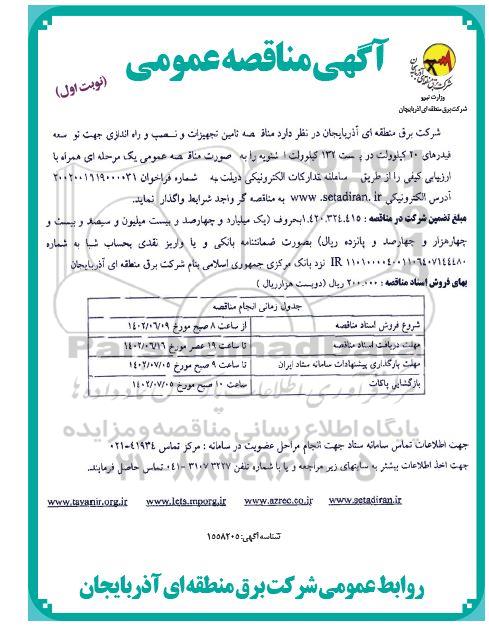 آگهی مناقصه عمومی
(نوبت اول)
وزارت نیرو
شرکت برق منطقه ای آذربایجان
شرکت برق منطقه ای آذربایجان در نظر دارد مناقصه تامین تجهیزات و نصب و راه اندازی جهت توسعه
فیدرهای ۲۰ کیلوولت در پست ۱۳۲ کیلوولت اشنویه را به صورت مناقصه عمومی یک مرحله ای همراه با
ارزیابی کیفی را از طریق سامانه تدارکات الکترونیکی دولت به شماره فراخوان ۲۰۰۲۰۰۱۶۱۹۰۰۰۰۳۱
آدرس الکترونیکی www.setadiran.ir به مناقصه گر واجد شرایط واگذار نماید.
مبلغ تضمین شرکت در مناقصه : ۱.۴۲۰.۳۲۴.۴۱۵بحروف (یک میلیارد و چهارصد و بیست میلیون و سیصد و بیست و
چهارهزار و چهارصد و پانزده ریال) بصورت ضمانتنامه بانکی و یا واریز نقدی بحساب شبا به شماره
IR ۱۱۰۱۰۰۰۰۴۰۰۱۱۰۶۴۰۷۱۴۴۴۸۰ نزد بانک مرکزی جمهوری اسلامی بنام شرکت برق منطقه ای آذربایجان
بهای فروش اسناد مناقصه : ۲۰۰.۰۰۰ ریال (دویست هزارریال)
جدول زمانی انجام مناقصه
شروع فروش اسناد مناقصه از ساعت ۸ صبح مورخ ۱۴۰۲/۰۶/۰۹
مهلت دریافت اسناد مناقصه تا ساعت ۱۹ عصر مورخ ۱۴۰۲/۰۶/۱۶
مهلت بارگذاری پیشنهادات سامانه ستاد ایران تا ساعت ۹ صبح مورخ ۱۴۰۲/۰۷/۰۵
بازگشایی پاکات ساعت ۱۰ صبح مورخ ۱۴۰۲/۰۷/۰۵
پایگاه اطلاع رسانی مناقصه و مزایده
۰۲۱-۸۸۳۴۹۶۷۰-۵
جهت اطلاعات تماس سامانه ستاد جهت انجام مراحل عضویت در سامانه : مرکز تماس ۴۱۹۳۴-۰۲۱
جهت اخذ اطلاعات بیشتر به سایتهای زیر مراجعه و یا با شماره تلفن ۳۲۲۷ ۳۱۰۷-۰۴۱ تماس حاصل فرمایند.
www.tavanir.org.ir www.iets.mporg.ir www.azrec.co.ir www.setadiran.ir
شناسه آگهی: ۱۵۵۸۲۰۵
روابط عمومی شرکت برق منطقه ای آذربایجان